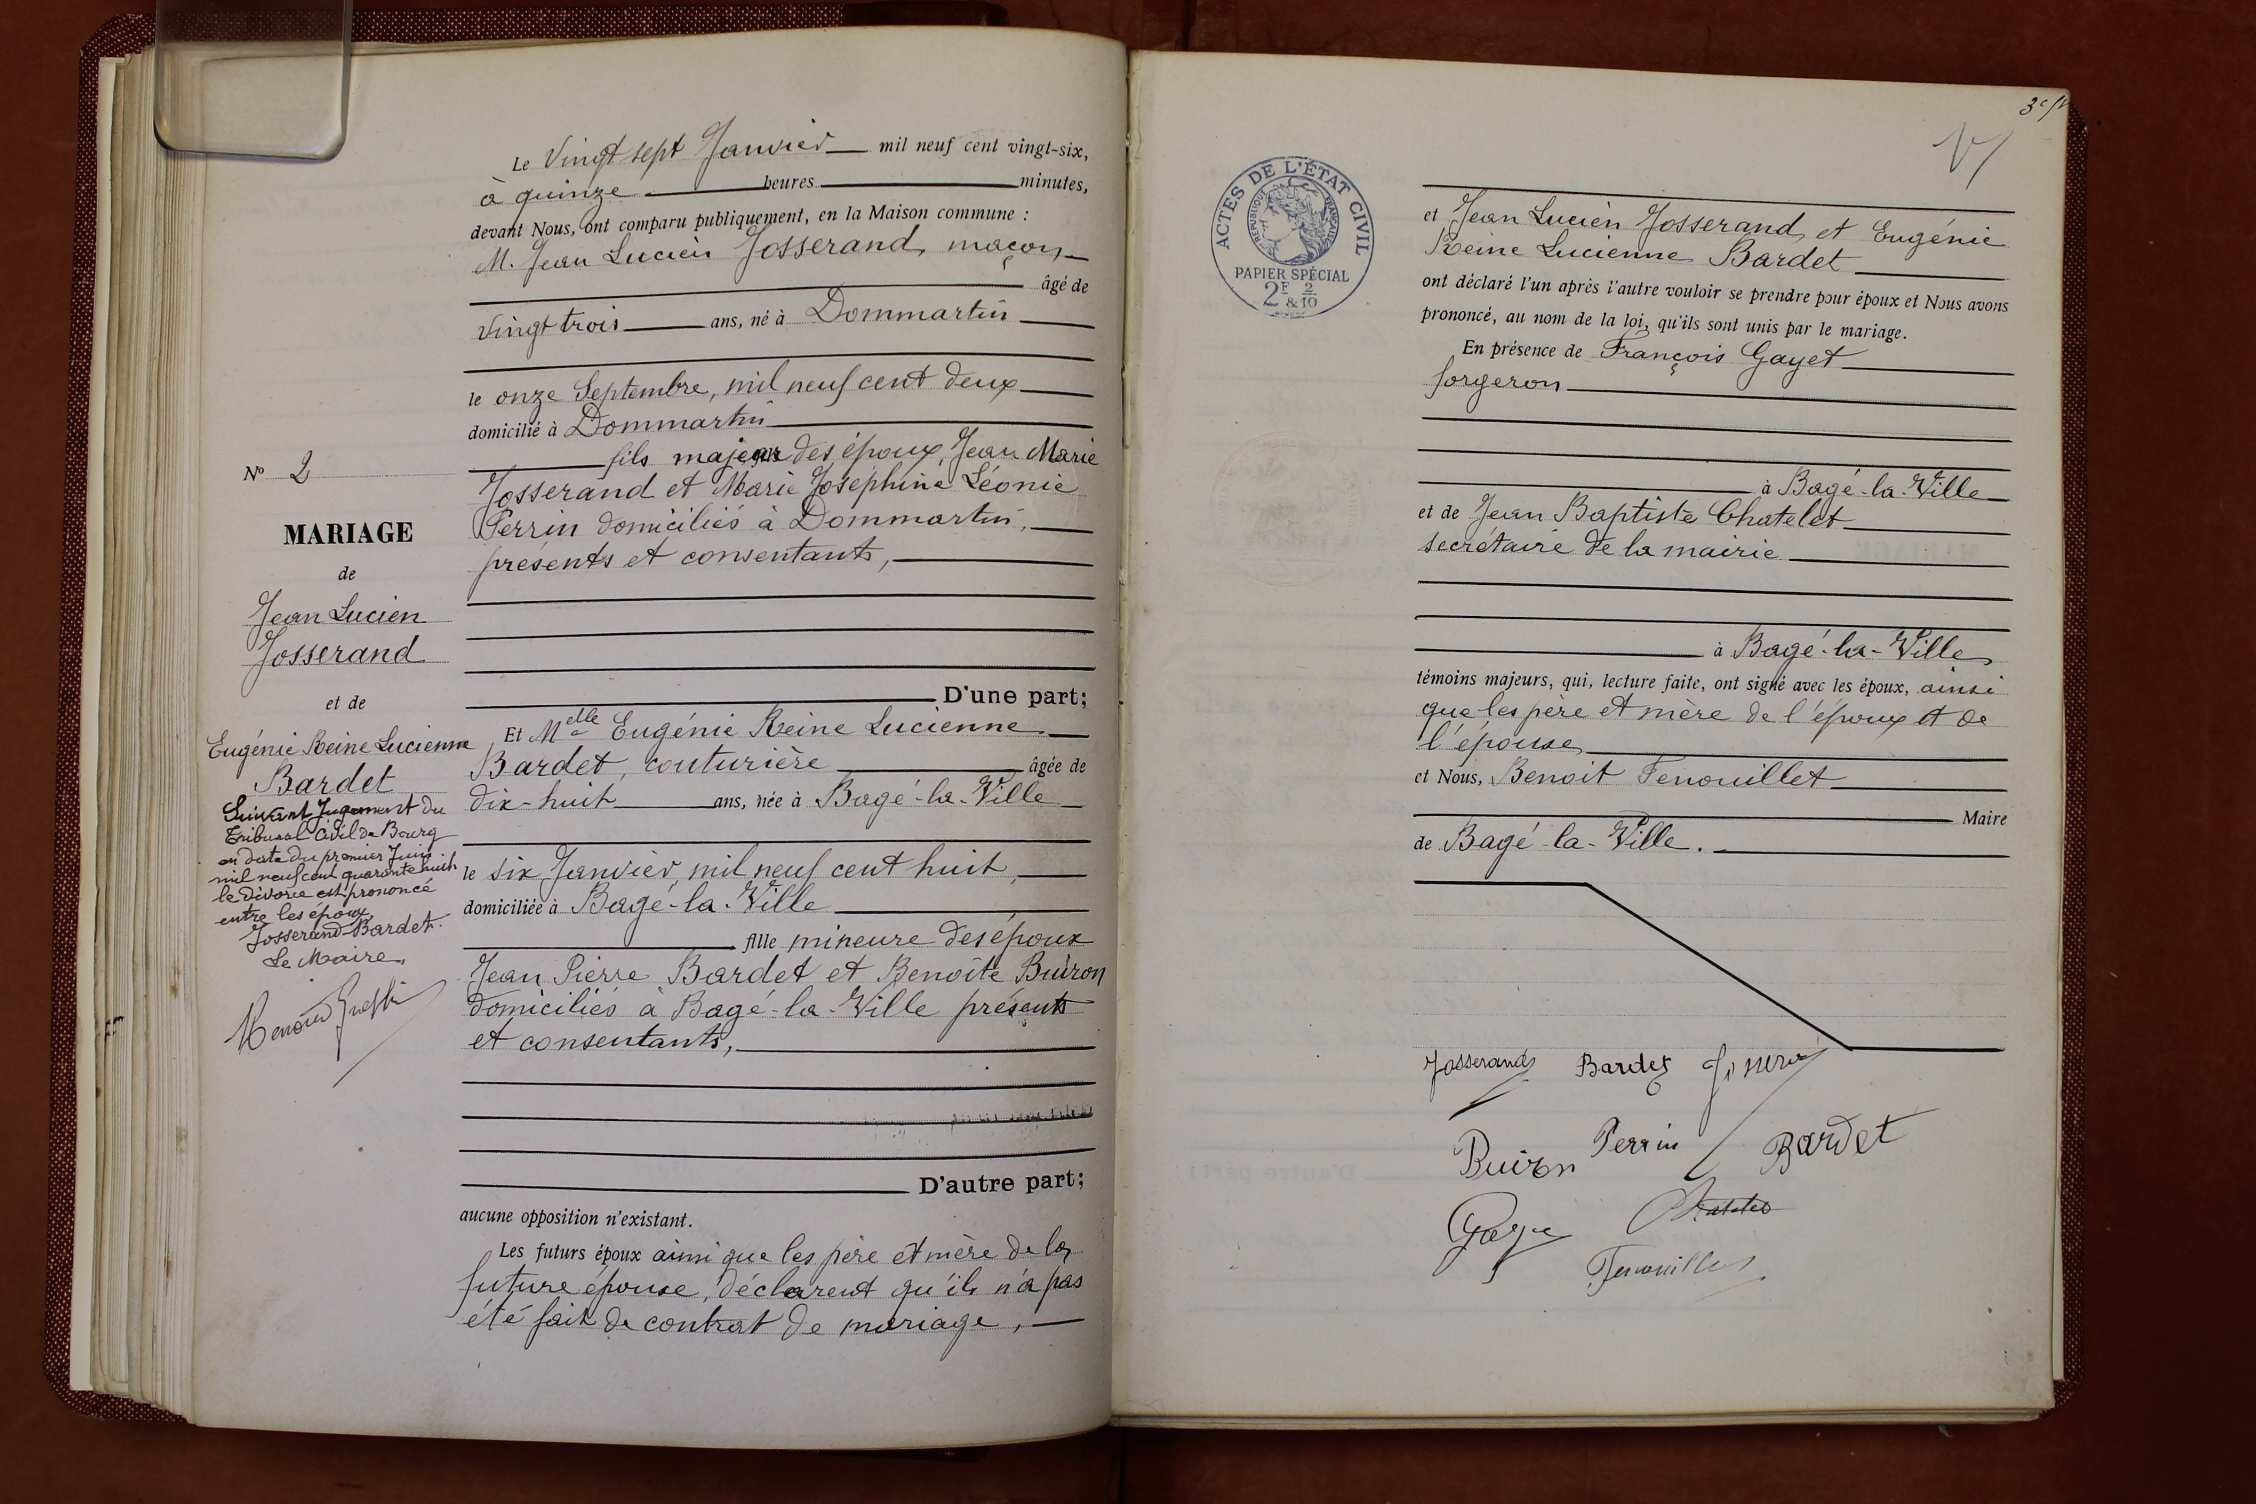 Le Vingt sept Janvier mil neuf cent vingt-six,
à quinze heures minutes,
devant Nous, ont comparu publiquement, en la Maison commune :
M. Jean Lucien Josserand, maçon,
âgé de
vingt trois ans, né à Dommartin
le onze Septembre, mil neuf cent deux
domicilié à Dommartin
fils majeur des époux Jean Marie
Josserand et Marie Joséphine Léonie
Perrin domiciliés à Dommartin,
présents et consentants,
D'une part;
Et Melle Eugénie Reine Lucienne
Bardet, couturière âgée de
dix-huit ans, née à Bagé-la-Ville
le six Janvier, mil neuf cent huit,
domiciliée à Bagé-la-Ville
fille mineure des époux
Jean Pierre Bardet et Benoîte Buiron
domiciliés à Bagé-la-Ville présents
et consentants,
D'autre part;
aucune opposition n'existant.
Les futurs époux ainsi que les père et mère de la
future épouse, déclarent qu'il n'a pas
été fait de contrat de mariage,
N° 2
MARIAGE
de
Jean Lucien
Josserand
et de
Eugénie Reine Lucienne
Bardet
Suivant Jugement du
Tribunal Civil de Bourg
en date du premier Juin
mil neuf cent quarante huit
le divorce est prononcé
entre les époux
Josserand-Bardet.
Le Maire,
ACTES DE L'ÉTAT CIVIL
RÉPUBLIQUE FRANÇAISE
PAPIER SPÉCIAL
2F &2/10
et Jean Lucien Josserand, et Eugénie
Reine Lucienne Bardet
ont déclaré l'un après l'autre vouloir se prendre pour époux et Nous avons
prononcé, au nom de la loi, qu'ils sont unis par le mariage.
En présence de François Gayet
forgeron
à Bagé-la-Ville
et de Jean Baptiste Chatelet
secrétaire de la mairie
à Bagé-la-Ville
témoins majeurs, qui, lecture faite, ont signé avec les époux, ainsi
que les père et mère de l'époux et de
l'épouse
et Nous, Benoit Fenouillet
Maire
de Bagé-la-Ville.
Josserand Bardet
Buiron Perrin Bardet